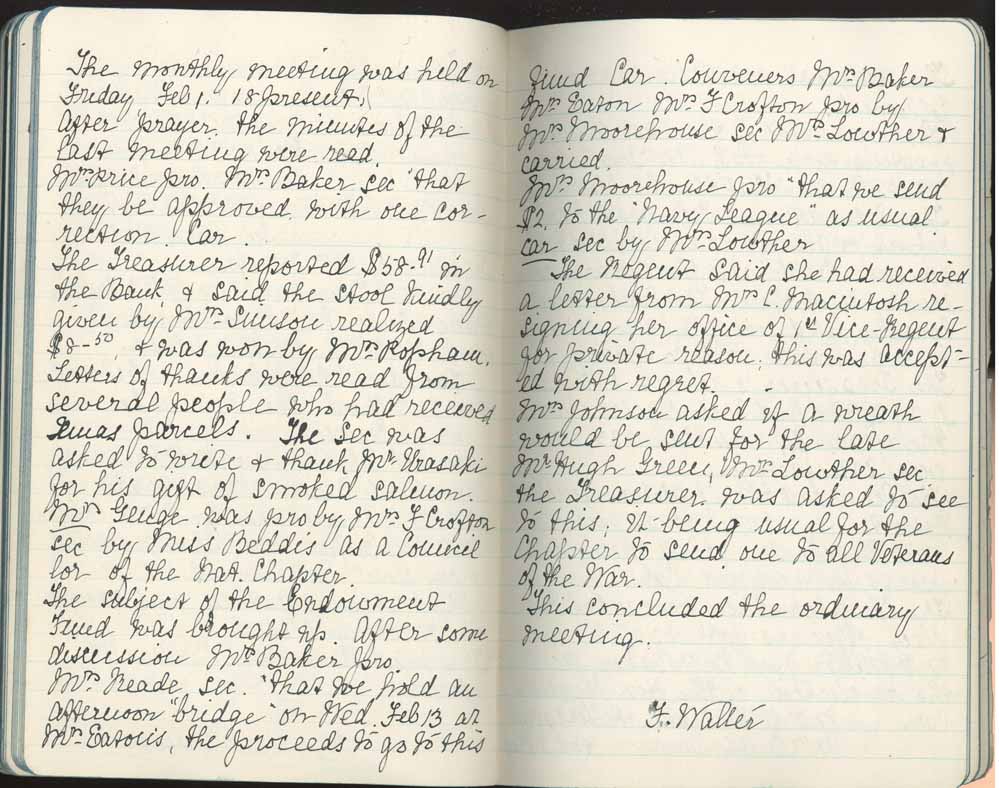 The monthly meeting was held on
Friday Feb 1. 18 present.
After prayer, the minutes of the
last meeting were read.
Mrs Price pro. Mrs Baker sec "that
they be approved with one cor-
rection. Car.
The Treasurer reported $58-91 in
the Bank & said the stool kindly
given by Mrs Simson realized
$8-50, & was won by Mrs Popham.
Letters of thanks were read from
several people who had received
Xmas parcels. The Sec was
asked to write & thank Mr Urasaki
for his gift of smoked salmon.
Mrs was pro by Mrs F Crofton
sec by Miss Beddis as a Council
lor of the Nat. Chapter.
The subject of the Endowment
Fund was brought up. After some
discussion Mrs Baker pro.
Mrs Reade, sec. "that we hold an
afternoon "bridge" on Wed. Feb 13 at
Mrs Eatons, the proceeds to go to this
Fund Car. Conveners Mrs Baker
Mrs Eaton Mrs F Crofton pro by
Mrs Moorehouse sec Mrs Lowther &
carried.
Mrs Moorehouse pro "that we send
$2. to the "Navy League" as usual.
car sec by Mrs Lowther
The Regent said she had received
a letter from Mrs C. Macintosh re-
signing her office of 1st Vice-Regent
for private reason, this was accept-
ed with regret.
Mrs Johnson asked if a wreath
would be sent for the late
Mr Hugh Greer, Mrs Lowther sec
the Treasurer was asked to see
to this, it being usual for the
Chapter to send one to all Veterans
of the War.
This concluded the ordinary
meeting.
F. Walter